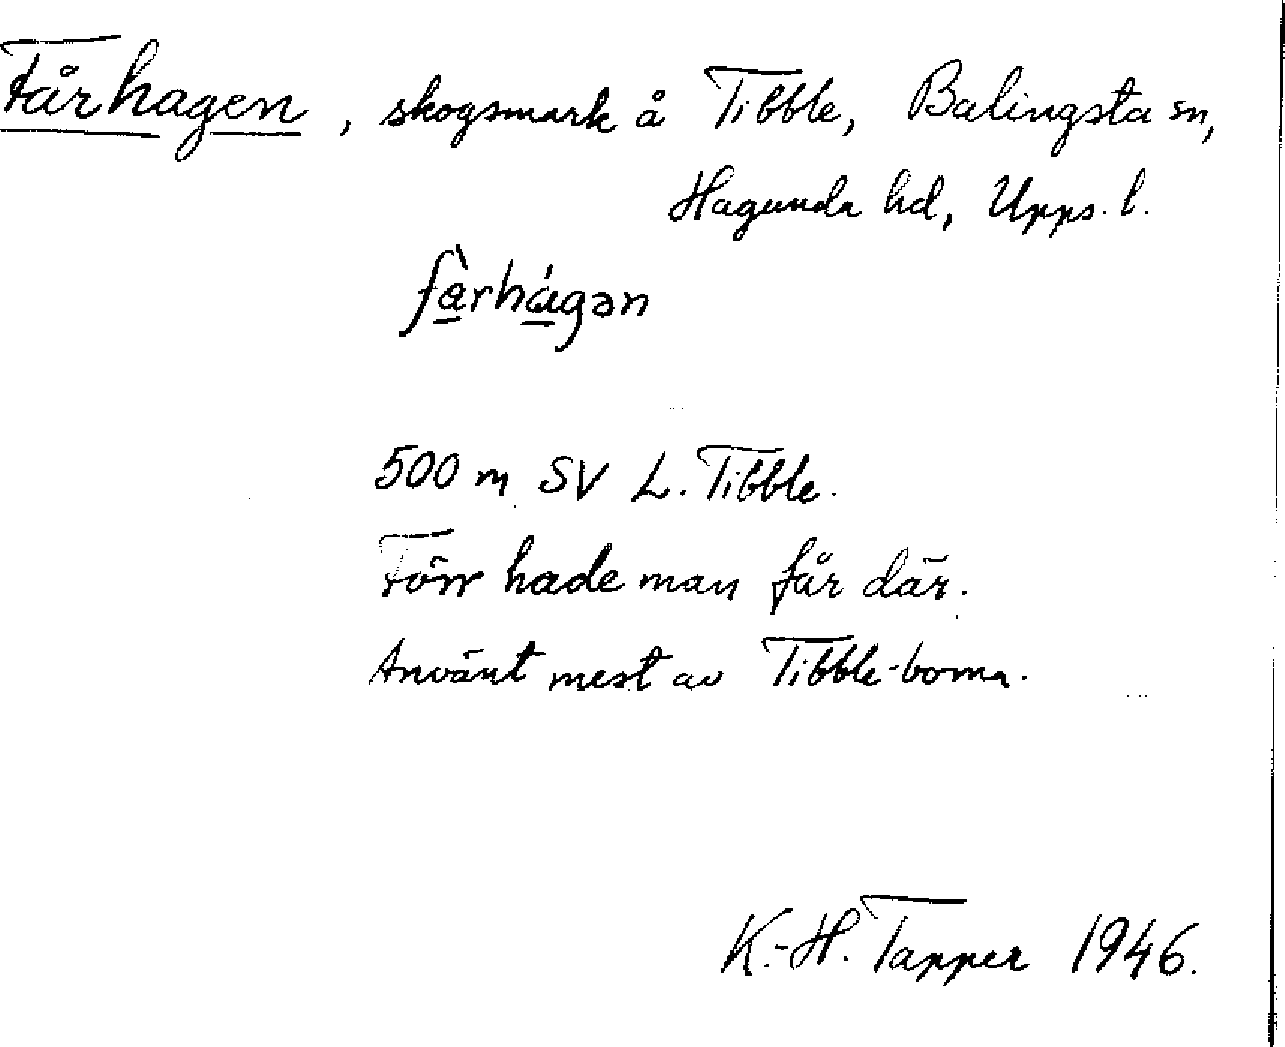 Fårhagen, skogsmark å Tibble, Balingsta sn,
Hagunda hd, Upps. l.
fàrhágən
500 m SV L. Tibble.
Förr hade man får där.
Använt mest av Tibble-borna.
K.-H. Tapper 1946.